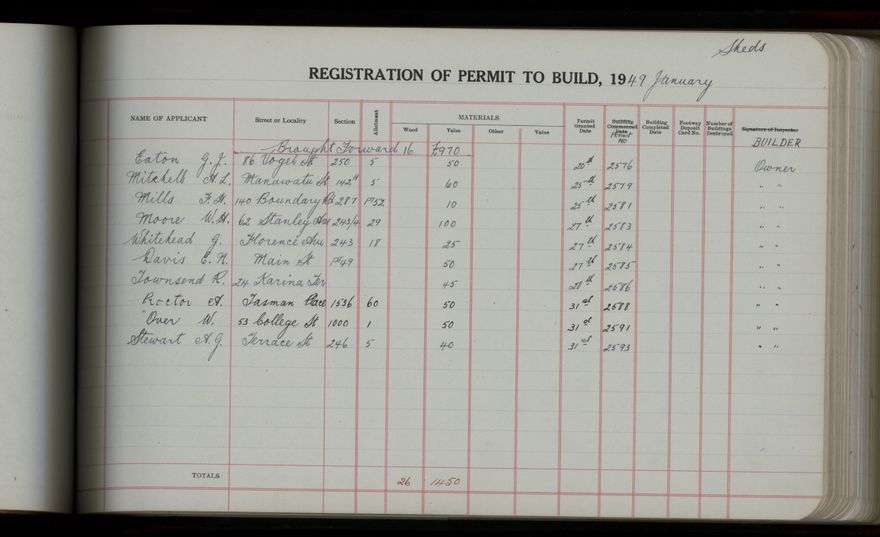 Sheds
REGISTRATION OF PERMIT TO BUILD, 1949 January
NAME OF APPLICANT Street or Locality Section Allotment MATERIALS Permit Granted Date Building Commenced Date Permit No Building Completed Date Footway Deposit Card No. Number of Buildings Destroyed Signature of Inspector BUILDER
Wood Value Other Value
Brought Forward 16 £970
Eaton G. J. 86 Vogel St 250 5 50 20th 2576 Owner
Mitchell H. L. Manawatu St 142" 5 60 25th 2579 " "
Mills F. H. 140 Boundary Rd 287 Pt52 10 25th 2581 " "
Moore W. H. 62 Stanley Ave 243/4 29 100 27th 2583 " "
Whitehead G. Florence Ave 243 18 25 27th 2584 " "
Davis E. N. Main St Pt49 50 27th 2585 " "
Townsend R. 24 Karina Ter 45 28th 2586 " "
Proctor A. Tasman Place 1536 60 50 31st 2588 " "
Over W. 53 College St 1000 1 50 31st 2591 " "
Stewart A. G. Terrace St 246 5 40 31st 2593 " "
TOTALS 26 1450